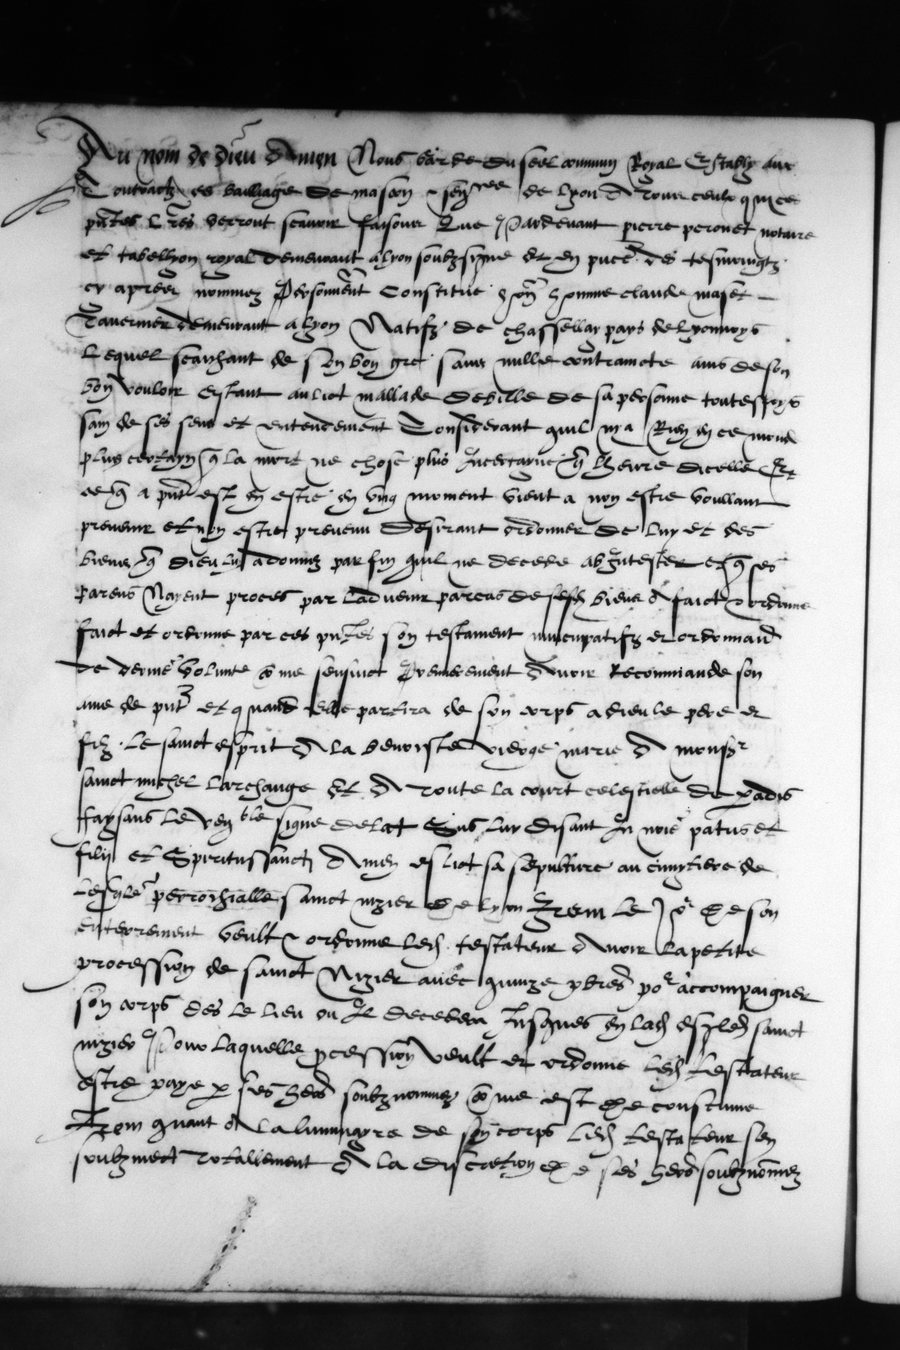 Au nom de dieu Amen Nous garde du seel commun Royal Estably aux
Contractz es bailliage de mascon & senes^cee de lyon A tous ceulx q ces
pntes l res verront scavoir faisons Que Pardevant pierre peronet notaire
et tabellyon royal demeurant a lyon soubzsigne Et en pnce des tesmoingtz
cy apres nommez Personnelment Constitue hon homme claude maset
Tavernier demeurant a lyon Natifz de chassellay pays de lyonnoys
Lequel scaichant de son bon gre sans nulle contraincte ains de son
bon vouloir Estant au lict mallade debille de sa personne toutesfoys
sain de ses sens et entendement Considerant quil ny a Rien en ce monde
plus certayn q la mort ne chose plus Incertayne q lheure dicelle Et
ce q a pnt est en estre en ung moment vient a non estre voullant
prevenir et non estre prevenu desirant ordonner de luy et des
biens q dieu luy a donnez par fin quil ne decede abintestet et q ses
parens Nayent proces par ladvenir par cas de sesd biens A faict & ordonne
faict et ordonne par ces pntes son testament nuncupatifz et ordonnance
de dernie volunte come sensuict Premierement Avoir Recommande son
ame de pnt et quand elle partira de son corps a dieu le pere et
filz le sainct esprit A la benoiste vierge marie A monsr
sainct michel larchange Et A toute la court celestielle de paradis
ffaysans le ven^ble signe de la + Sus luy disant In noie patris et
filii et Spiritussancti Amen eslict sa sepulture au cimytiere de
lesgle perrochialle sainct nizier de lyon Item le Jor de son
enterrement veult & ordonne led testateur Avoir la petite
procession de sainct Nizier avec quinze pbres por accompaigner
son corps des le lieu ou Il decedera Jusques en lad esgled sainct
nizier Pour laquelle pcession veult et ordonne led Testateur
estre paye p ses hers soubznommez come est de coustume
Item quant A la luminayre de son corps led testateur sen
soubzmect totallement A la discretion de ses hers soubznommez